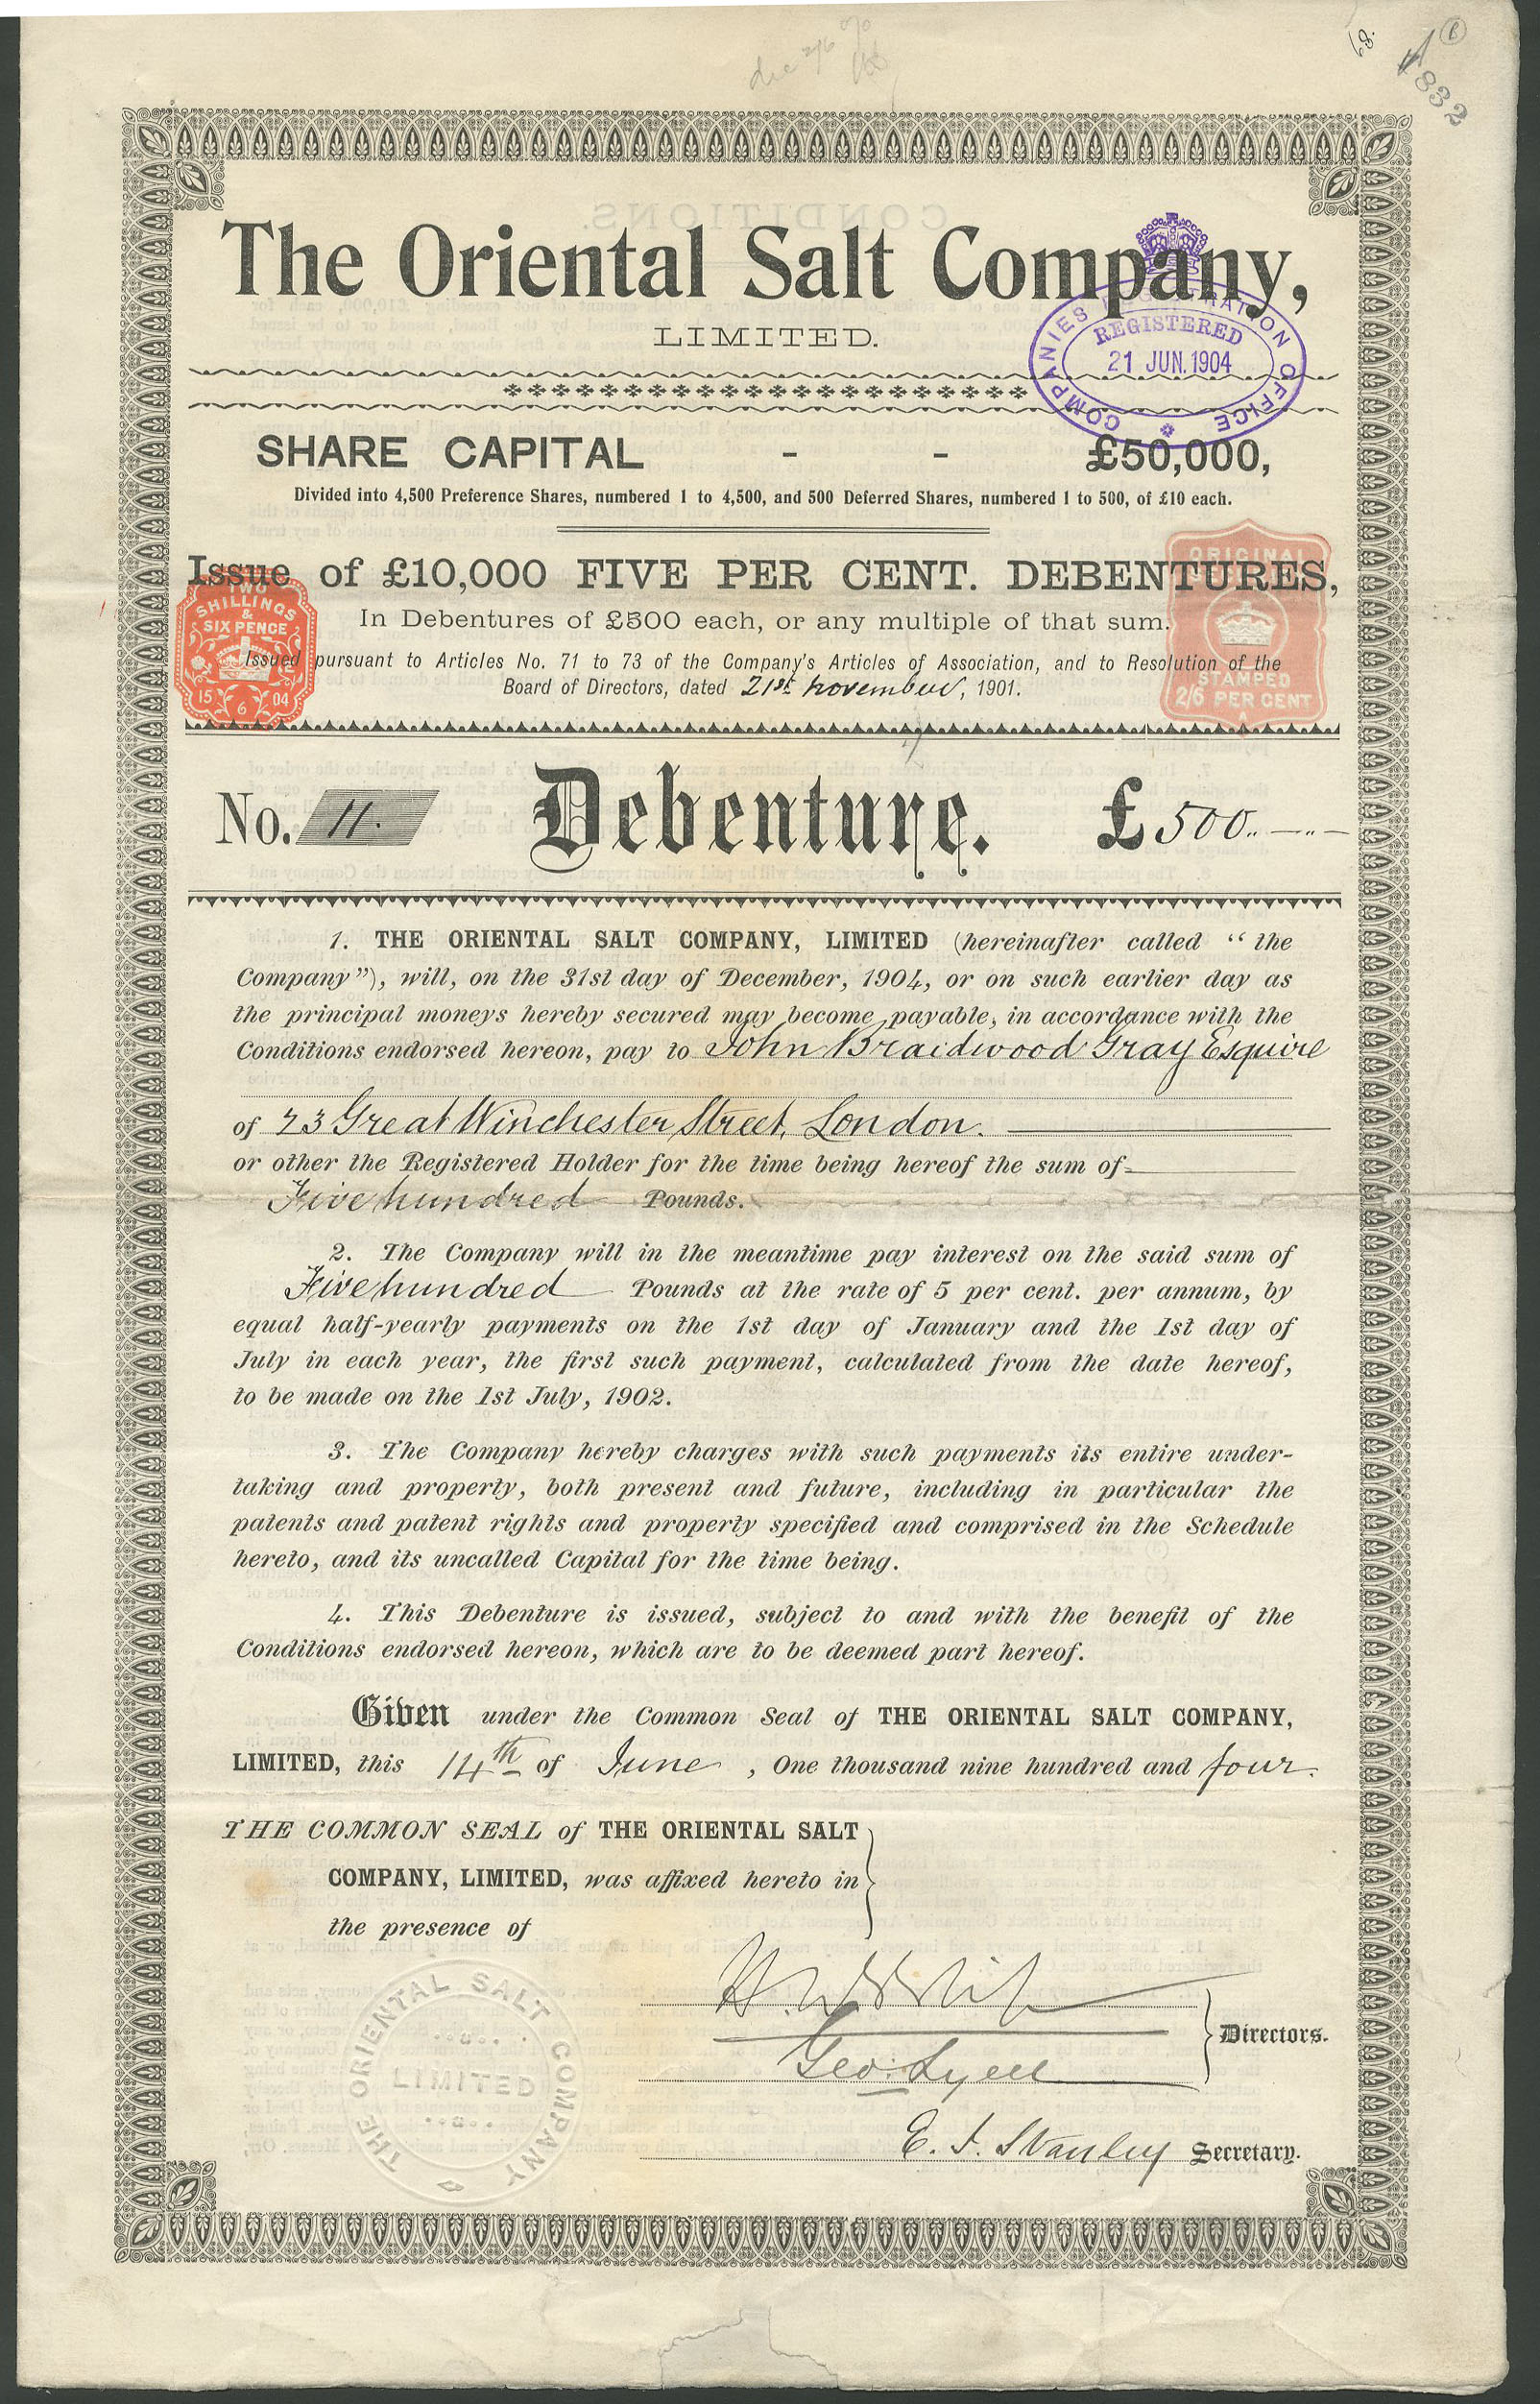 832
The Oriental Salt Company,
LIMITED.
COMPANIES REGISTRATION OFFICE
REGISTERED
21 JUN. 1904
SHARE CAPITAL - - £50,000,
Divided into 4,500 Preference Shares, numbered 1 to 4,500, and 500 Deferred Shares, numbered 1 to 500, of £10 each.
Issue of £10,000 FIVE PER CENT. DEBENTURES,
In Debentures of £500 each, or any multiple of that sum.
Issued pursuant to Articles No. 71 to 73 of the Company's Articles of Association, and to Resolution of the
Board of Directors, dated 21st November, 1901.
TWO
SHILLINGS
&
SIX PENCE
15 6 04
ORIGINAL
STAMPED
2/6 PER CENT
No. 11. Debenture. £500..—..—
1. THE ORIENTAL SALT COMPANY, LIMITED (hereinafter called "the
Company"), will, on the 31st day of December, 1904, or on such earlier day as
the principal moneys hereby secured may become payable, in accordance with the
Conditions endorsed hereon, pay to John Braidwood Gray Esquire
of 23 Great Winchester Street, London.
or other the Registered Holder for the time being hereof the sum of
Five hundred Pounds.
2. The Company will in the meantime pay interest on the said sum of
Five hundred Pounds at the rate of 5 per cent. per annum, by
equal half-yearly payments on the 1st day of January and the 1st day of
July in each year, the first such payment, calculated from the date hereof,
to be made on the 1st July, 1902.
3. The Company hereby charges with such payments its entire under-
taking and property, both present and future, including in particular the
patents and patent rights and property specified and comprised in the Schedule
hereto, and its uncalled Capital for the time being.
4. This Debenture is issued, subject to and with the benefit of the
Conditions endorsed hereon, which are to be deemed part hereof.
Given under the Common Seal of THE ORIENTAL SALT COMPANY,
LIMITED, this 14th of June, One thousand nine hundred and four.
THE COMMON SEAL of THE ORIENTAL SALT
COMPANY, LIMITED, was affixed hereto in
the presence of
THE ORIENTAL SALT COMPANY
LIMITED
Geo. Lyell
Directors.
E. J. Stanley Secretary.